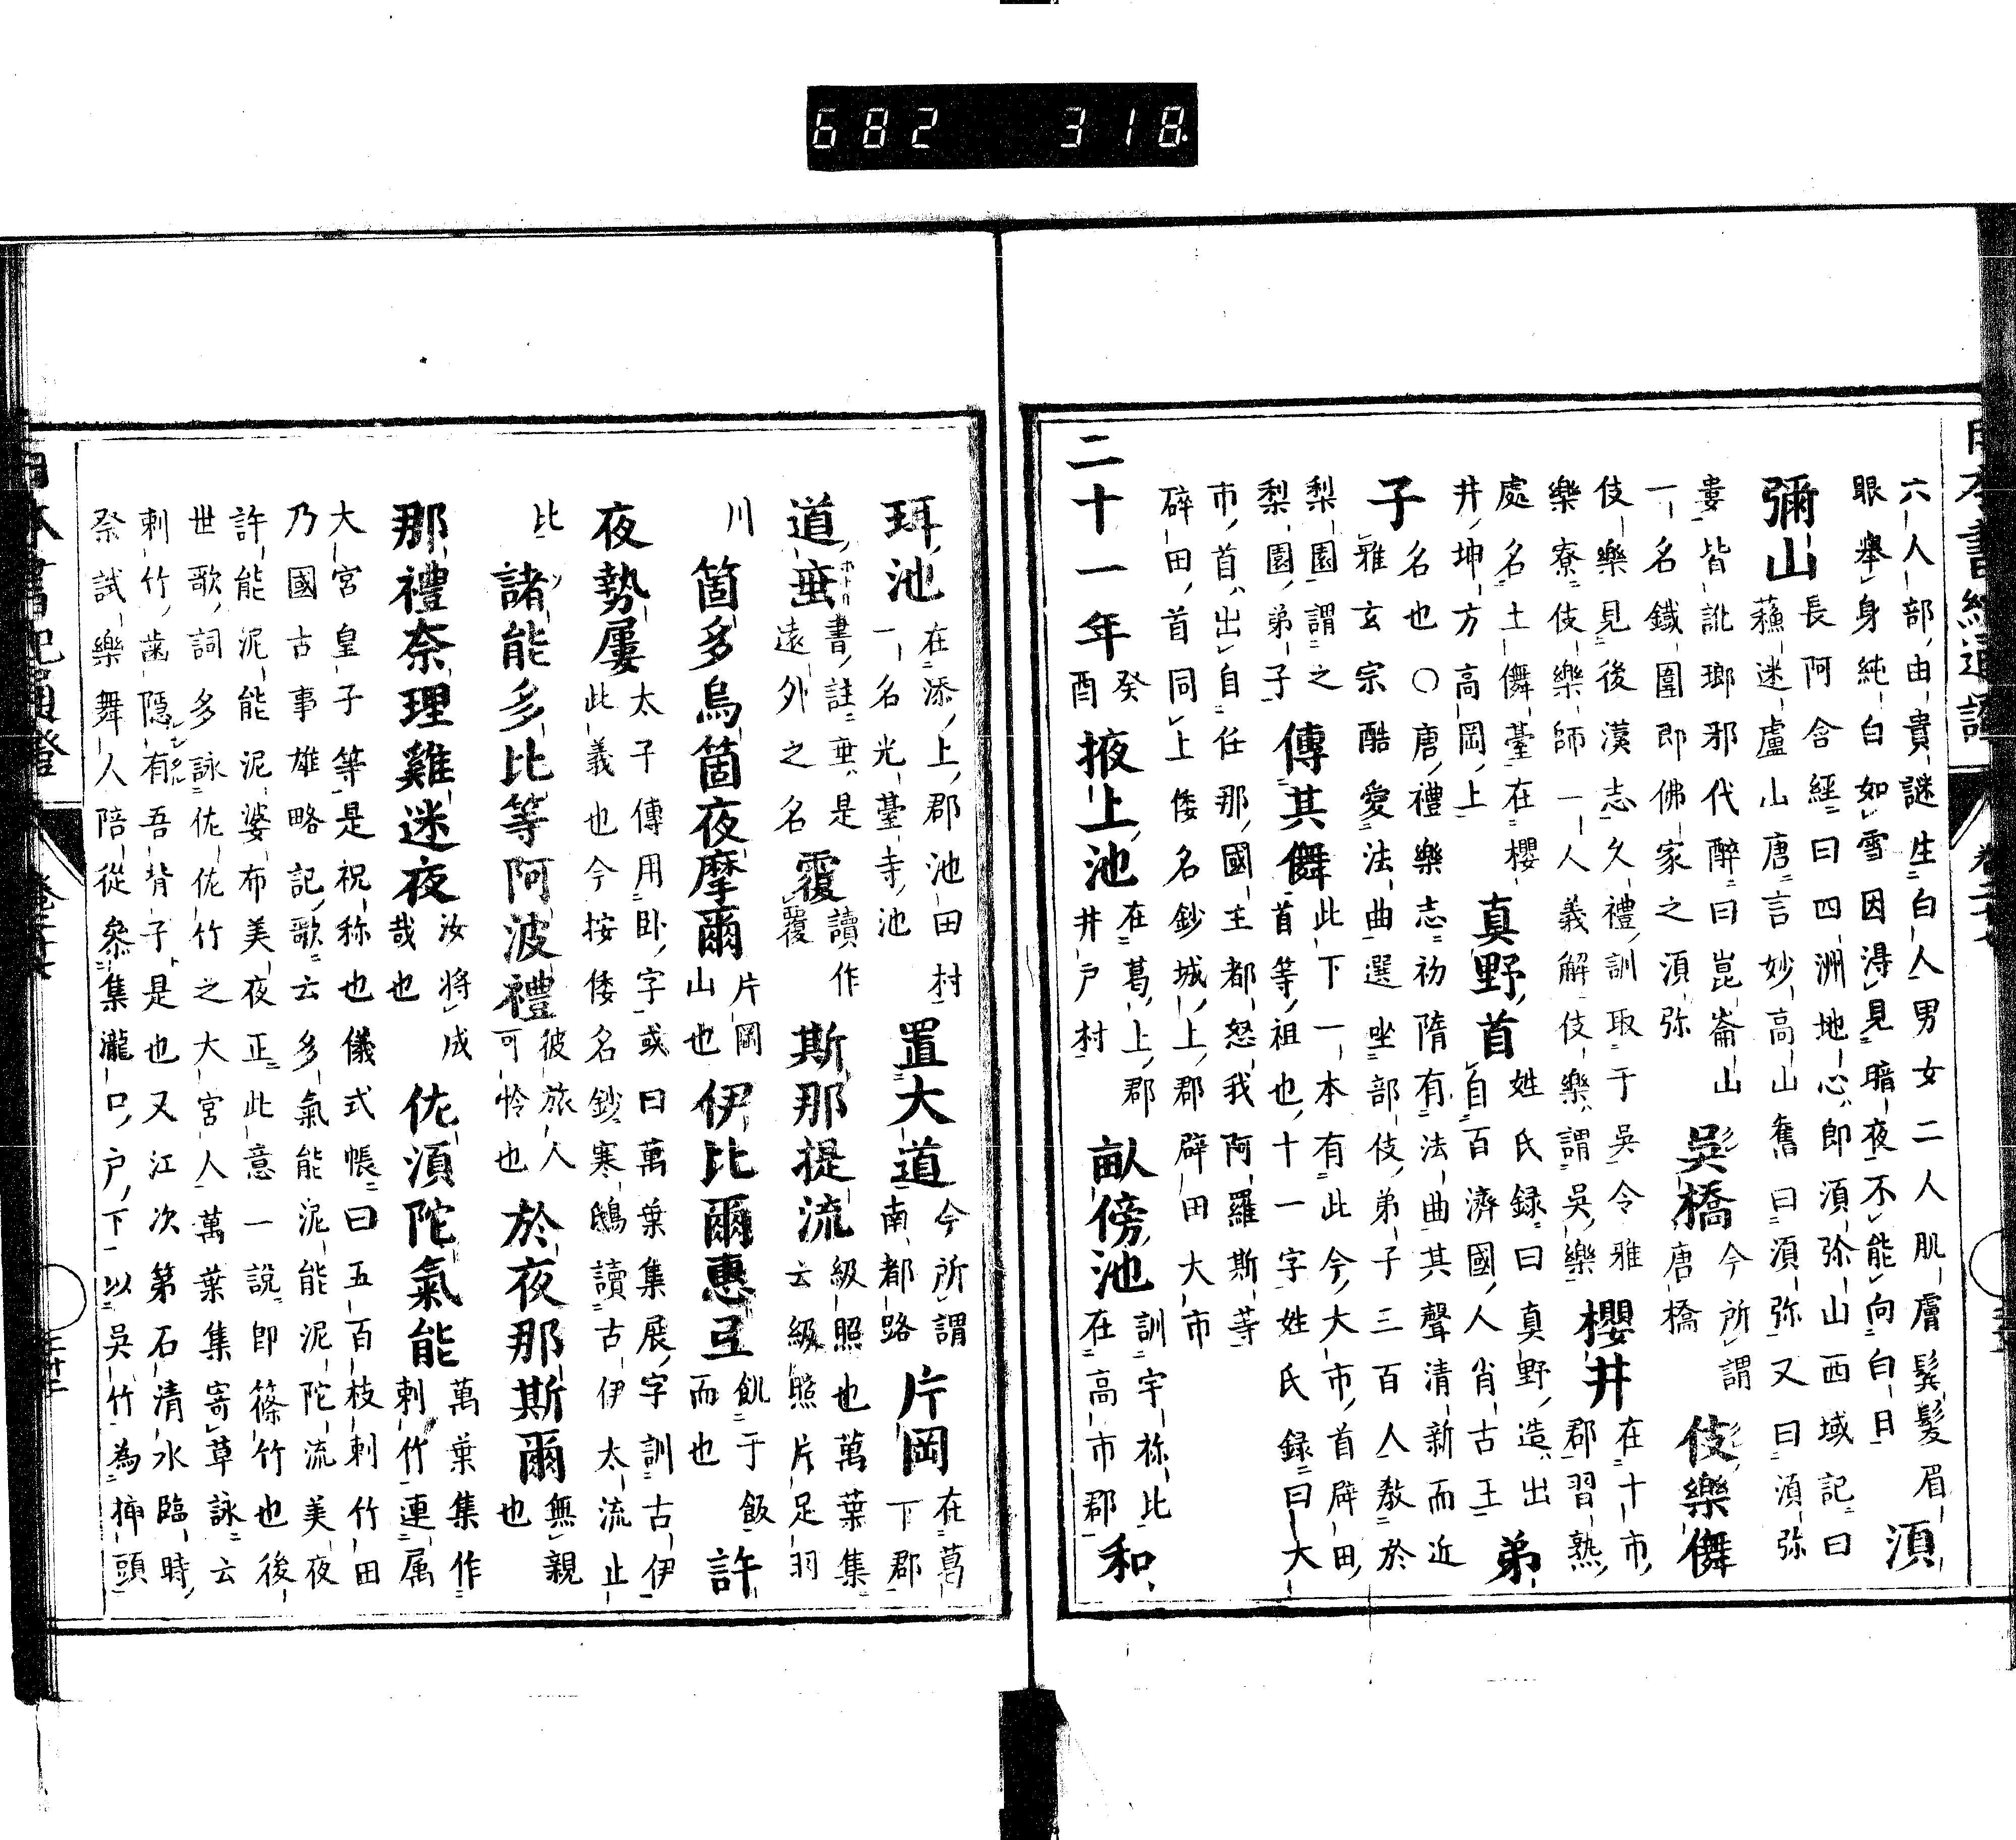 682 318
六人部由貴謎生白人男女二人肌膚髮髮眉
眼擧身純白如雪因淂見暗夜不能向白日
須
彌山
長阿含經曰四洲地心即須弥山西域記曰
蘓迷盧山唐言妙高山舊曰須弥又曰須弥
婁皆訛瑯邪代醉曰崑崙山
一名鐵圍即佛家之須弥
吳橋
今所謂
唐橋
伎樂儛
伎樂見後漢志久禮訓取于吳令雅
樂寮伎樂師一人義解伎樂謂吳樂
櫻井
在十市
郡習熟
處名土儛臺在櫻
井坤方高岡上
真野首
姓氏録曰真野造出
自百濟國人肖古王
弟
子
名也〇唐禮樂志初隋有法曲其聲清新而近
雅玄宗酷愛法曲選坐部伎弟子三百人教於
梨園謂之
梨園弟子
傳其儛
此下一本有此今大市首辟田
首等祖也十一字姓氏録曰大
市首出自任那國主都怒我阿羅斯等
辟田首同上倭名鈔城上郡辟田大市
二十一年
癸
酉
掖上池
在葛上郡
井戸村
畝傍池
訓宇祢比
在高市郡
和
珥池
在添上郡池田村
一名光臺寺池
置大道
今所謂
南都路
片岡
在葛
下郡
道垂
書註垂是
遠外之名
覆
讀作
覆
斯那提流
級照也萬葉集
云級照片足羽
川
箇多烏箇夜摩爾
片岡
山也
伊比爾惠弖
飢于飯
而也
許
夜勢屢
太子傳用卧字或曰萬葉集展字訓古伊
此義也今按倭名鈔寒鴟讀古伊太流止
比
諸能多比等阿波禮
彼旅人
可怜也
於夜那斯爾
無親
也
那禮奈理雞迷夜
汝將成
哉也
佐須陀氣能
萬葉集作
刺竹連属
大宮皇子等是祝称也儀式帳曰五百枝刺竹田
乃國古事雄略記歌云多氣能泥能泥陀流美夜
許能泥能泥婆布美夜正此意一說即篠竹也後
世歌詞多詠佐佐竹之大宮人萬葉集寄草詠云
刺竹歯隠有吾背子是也又江次第石清水臨時
祭試樂舞人陪從參集瀧口戸下以吳竹為挿頭